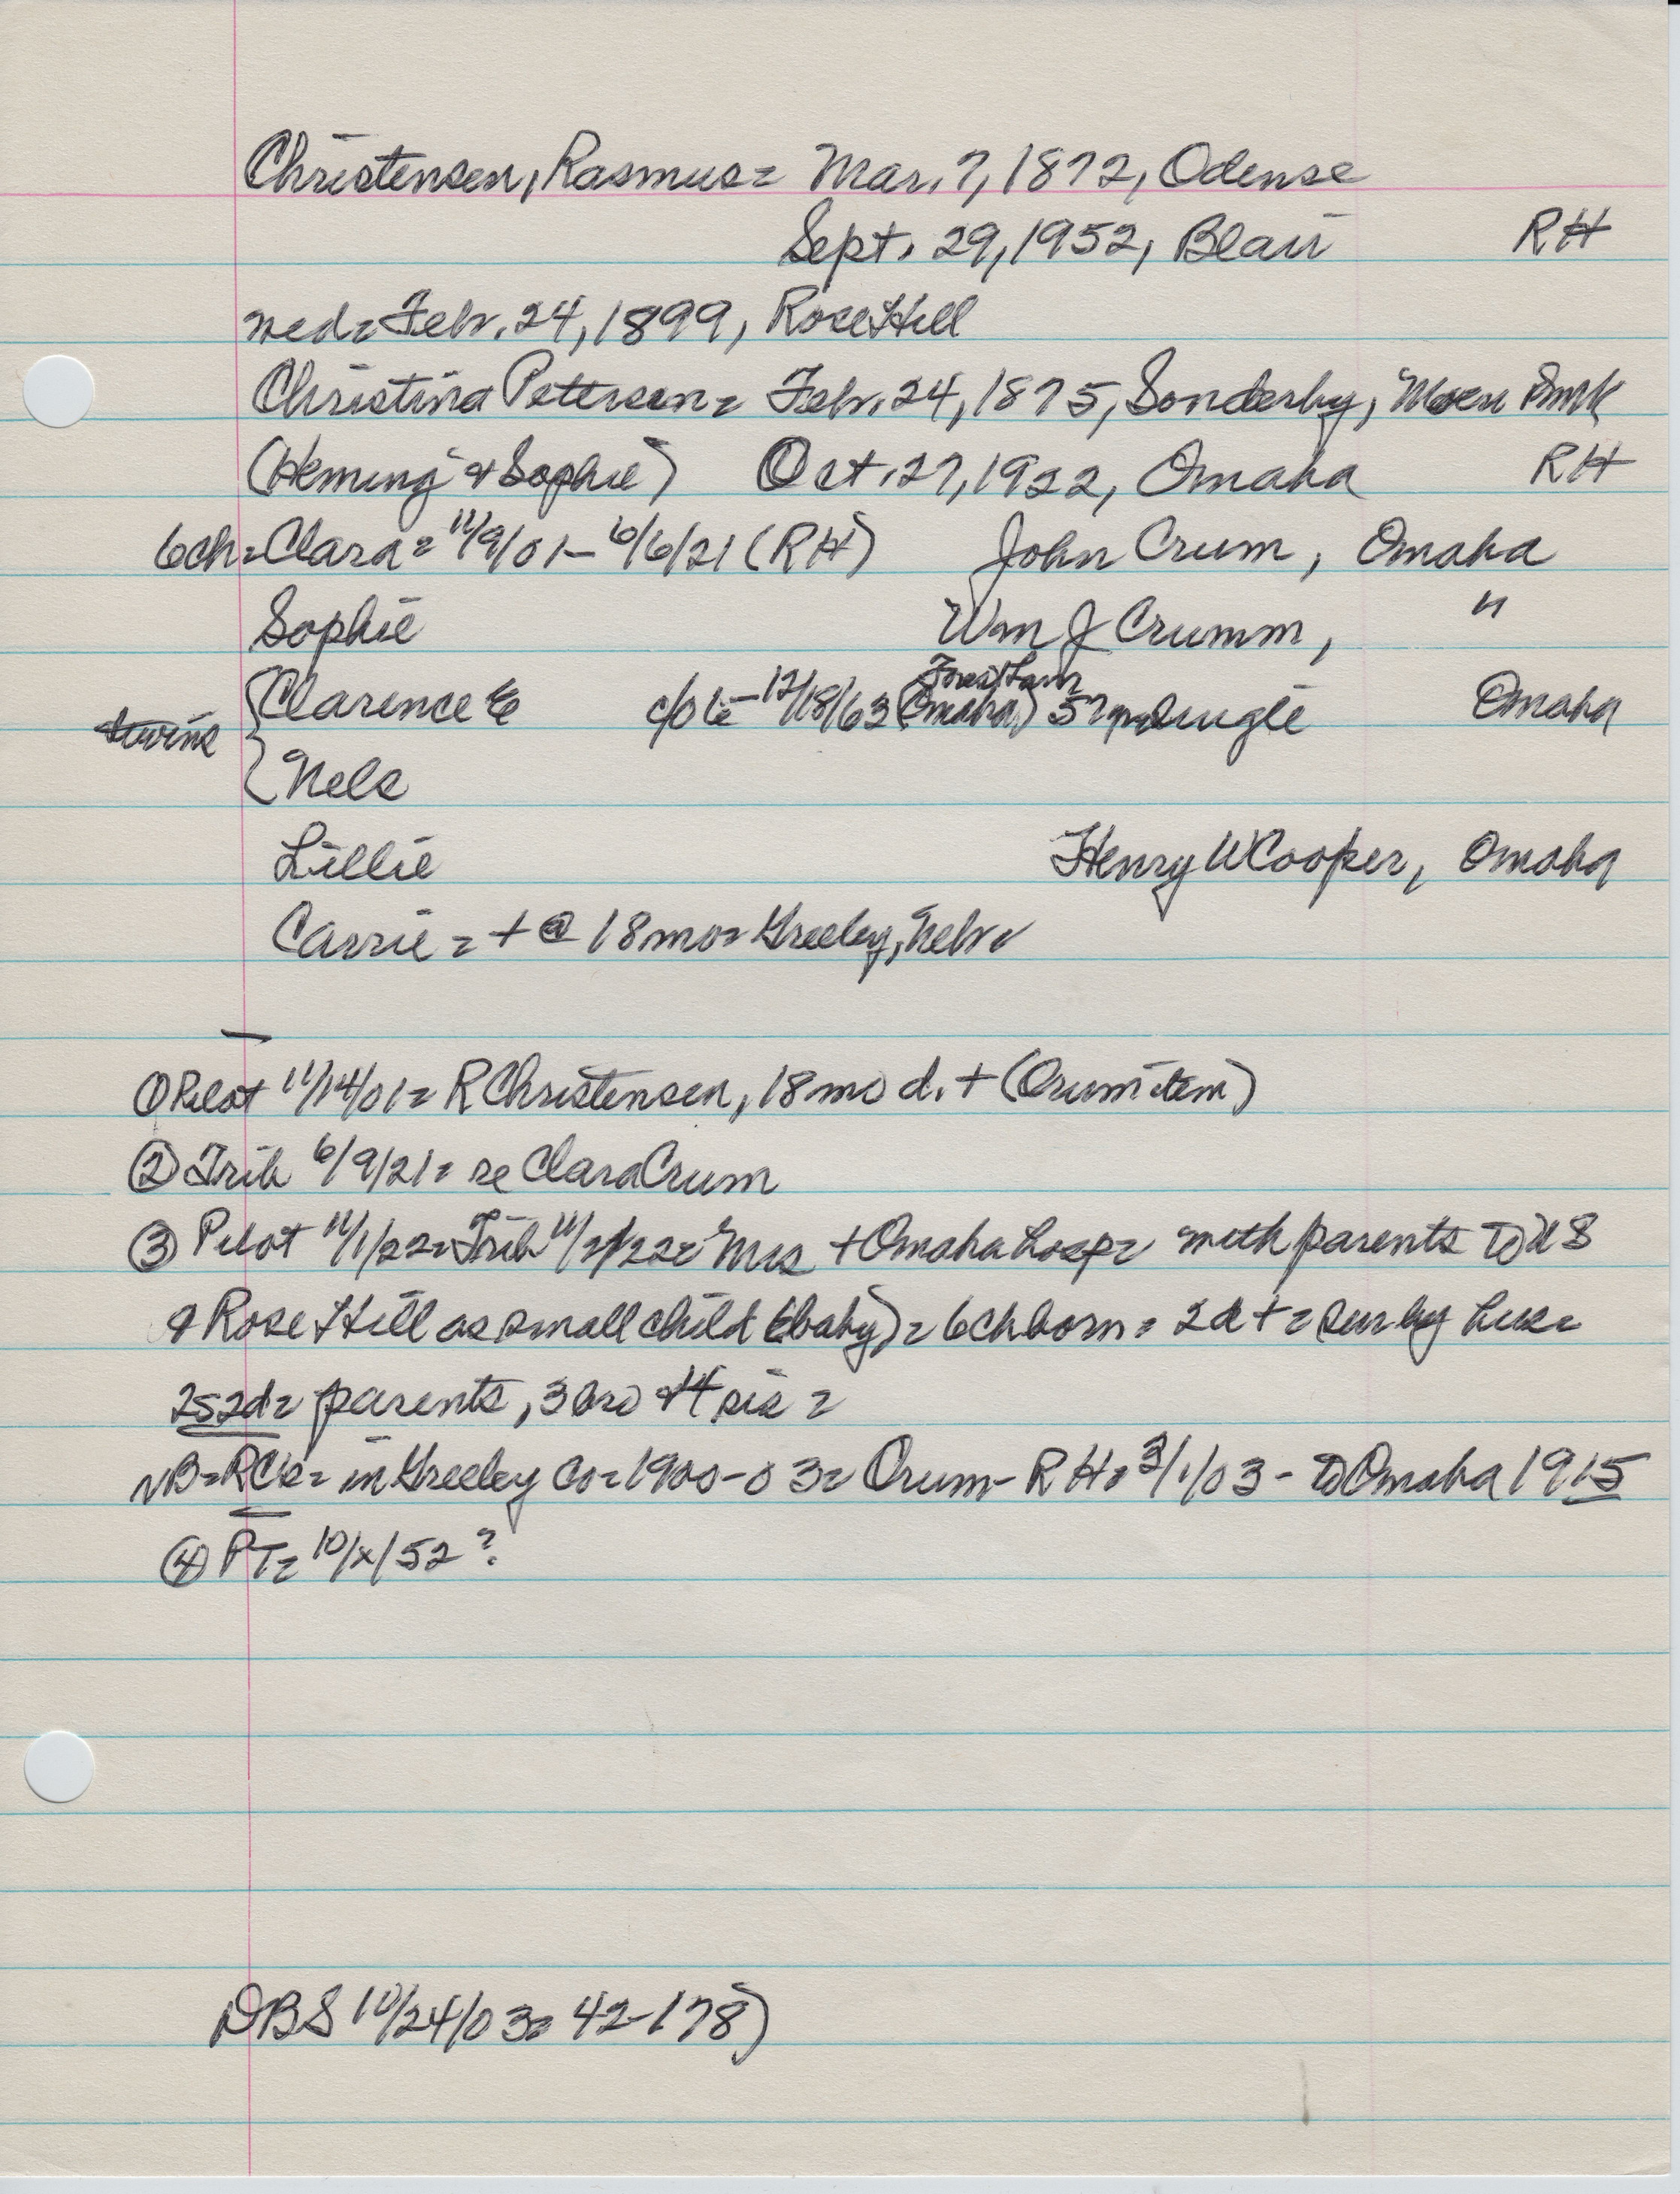 Christensen, Rasmus = Mar. 7, 1872, Odense
Sept. 29, 1952, Blair RH
wed = Febr. 24, 1899, Rose Hill
Christina Petersen = Febr. 24, 1875, Sonderby, Moen Dmk
(Heming & Sophie) Oct. 27, 1922, Omaha RH
6ch = Clara = 11/9/01 - 6/6/21 (RH) John Crum, Omaha
Sophie Wm J Crumm, "
Clarence E - 12/18/63 (Omaha) Forest Lawn single Omaha
twins
Nels
Lillie Henry W Cooper, Omaha
Carrie = + @ 18 mo = Greeley, Nebr
① Pilot 11/14/01 = R Christensen, 18 mo d. + (Orum item)
② Trib 6/9/21 = re Clara Crum
③ Pilot 11/1/22 = Trib 11/2/22 = Mrs + Omaha Hosp = with parents to US
& Rose Hill as small child (baby) = 6ch born = 2d + = sur by hus =
2s 2d = parents, 3 bro & 4 sis =
NB = RC's = in Greeley Co = 1900-03 = Orum - RH = 3/1/03 - to Omaha 1915
④ PT = 10/x/52 ?
DBS 10/24/03 = 42-178)